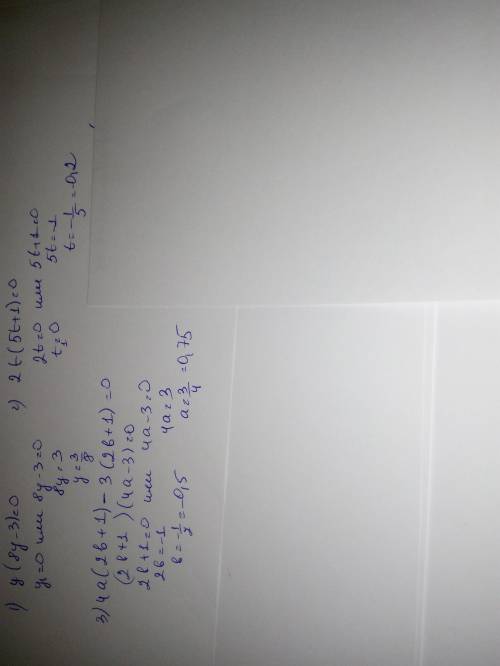 1) y(8y-3)=0
y₁=0 или 8y-3=0
8y=3
y=3/8
2) 2t(5t+1)=0
2t=0 или 5t+1=0
t₁=0
5t=-1
t=-1/5=-0,2
3) 4a(2b+1)-3(2b+1)=0
(2b+1)(4a-3)=0
2b+1=0 или 4a-3=0
2b=-1
4a=3
b=-1/2=-0,5
a=3/4=0,75